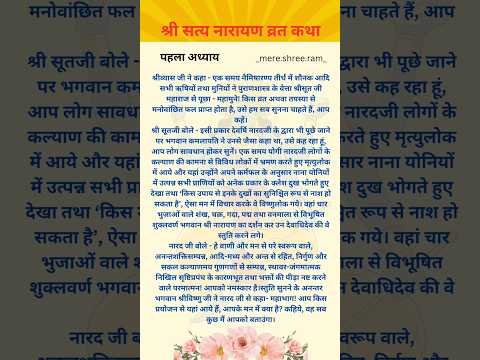 श्री सत्य नारायण व्रत कथा
पहला अध्याय
_mere.shree.ram_
श्रीव्यास जी ने कहा - एक समय नैमिषारण्य तीर्थ में शौनक आदि
सभी ऋषियों तथा मुनियों ने पुराणशास्त्र के वेत्ता श्रीसूत जी
महाराज से पूछा - महामुने! किस व्रत अथवा तपस्या से
मनोवांछित फल प्राप्त होता है, उसे हम सब सुनना चाहते हैं, आप
कहें।
श्री सूतजी बोले - इसी प्रकार देवर्षि नारदजी के द्वारा भी पूछे जाने
पर भगवान कमलापति ने उनसे जैसा कहा था, उसे कह रहा हूं,
आप लोग सावधान होकर सुनें। एक समय योगी नारदजी लोगों के
कल्याण की कामना से विविध लोकों में भ्रमण करते हुए मृत्युलोक
में आये और यहां उन्होंने अपने कर्मफल के अनुसार नाना योनियों
में उत्पन्न सभी प्राणियों को अनेक प्रकार के क्लेश दुख भोगते हुए
देखा तथा ‘किस उपाय से इनके दुखों का सुनिश्चित रूप से नाश हो
सकता है’, ऐसा मन में विचार करके वे विष्णुलोक गये। वहां चार
भुजाओं वाले शंख, चक्र, गदा, पद्म तथा वनमाला से विभूषित
शुक्लवर्ण भगवान श्री नारायण का दर्शन कर उन देवाधिदेव की वे
स्तुति करने लगे।
नारद जी बोले - हे वाणी और मन से परे स्वरूप वाले,
अनन्तशक्तिसम्पन्न, आदि-मध्य और अन्त से रहित, निर्गुण और
सकल कल्याणमय गुणगणों से सम्पन्न, स्थावर-जंगमात्मक
निखिल सृष्टिप्रपंच के कारणभूत तथा भक्तों की पीड़ा नष्ट करने
वाले परमात्मन! आपको नमस्कार है।स्तुति सुनने के अनन्तर
भगवान श्रीविष्णु जी ने नारद जी से कहा- महाभाग! आप किस
प्रयोजन से यहां आये हैं, आपके मन में क्या है? कहिये, वह सब
कुछ मैं आपको बताउंगा।